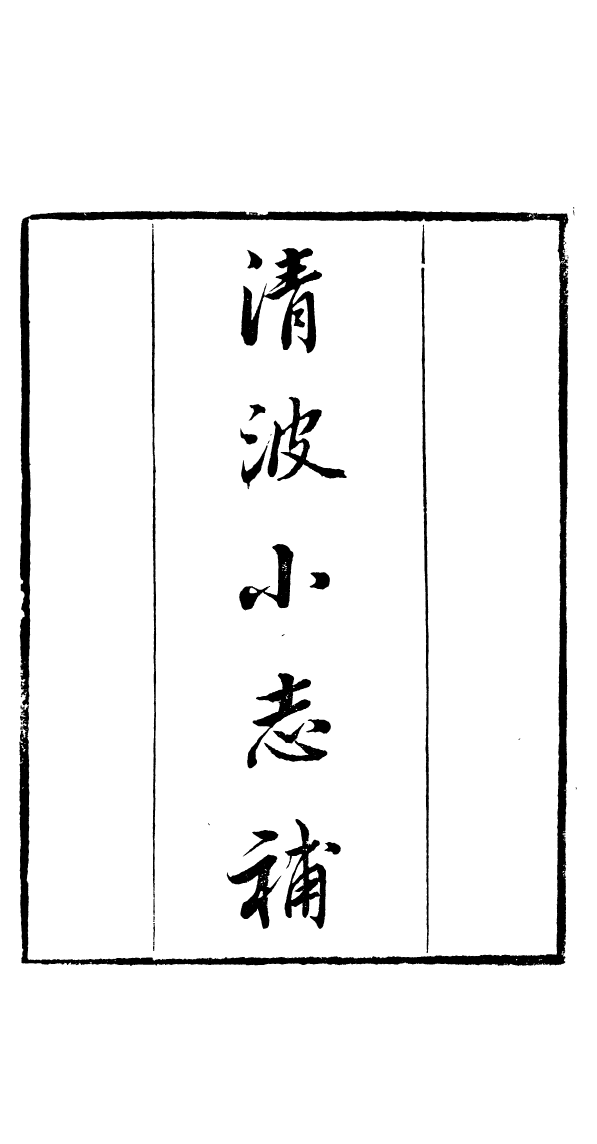 清波小志補